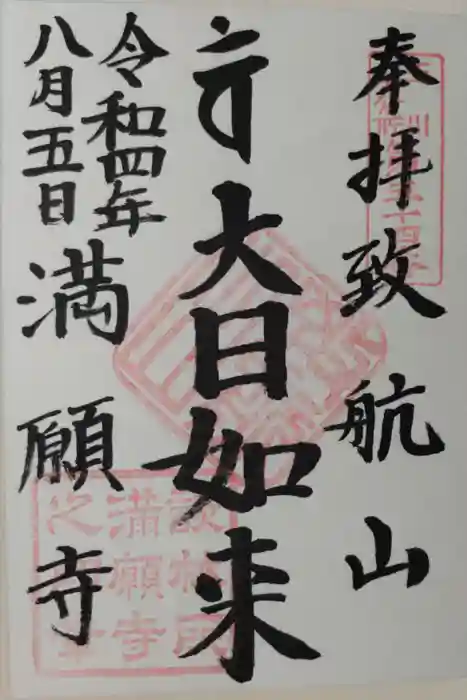 奉拝 致航山
大日如来
令和四年
八月五日 満願寺
満願寺